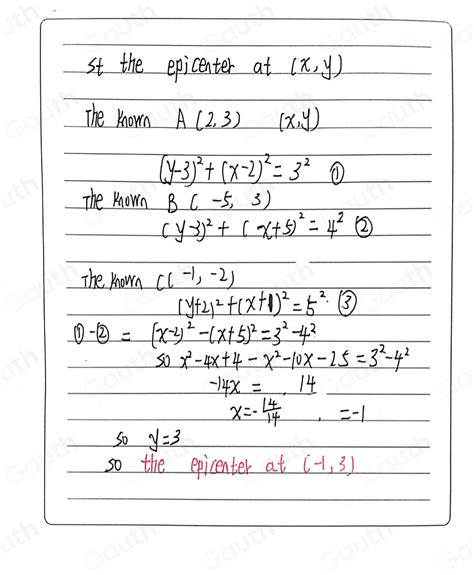 st the epicenter at (x,y)
The known A(2,3) (x,y)
(y-3)²+(x-2)²=3² ①
The known B(-5, 3)
(y-3)²+(x+5)²=4² ②
The known C(-1,-2)
(y+2)²+(x+1)²=5². ③
①-② = (x-2)²-(x+5)²=3²-4²
so x²-4x+4-x²-10x-25=3²-4²
-14x = 14
x=-14/14 =-1
so y=3
so the epicenter at (-1,3)